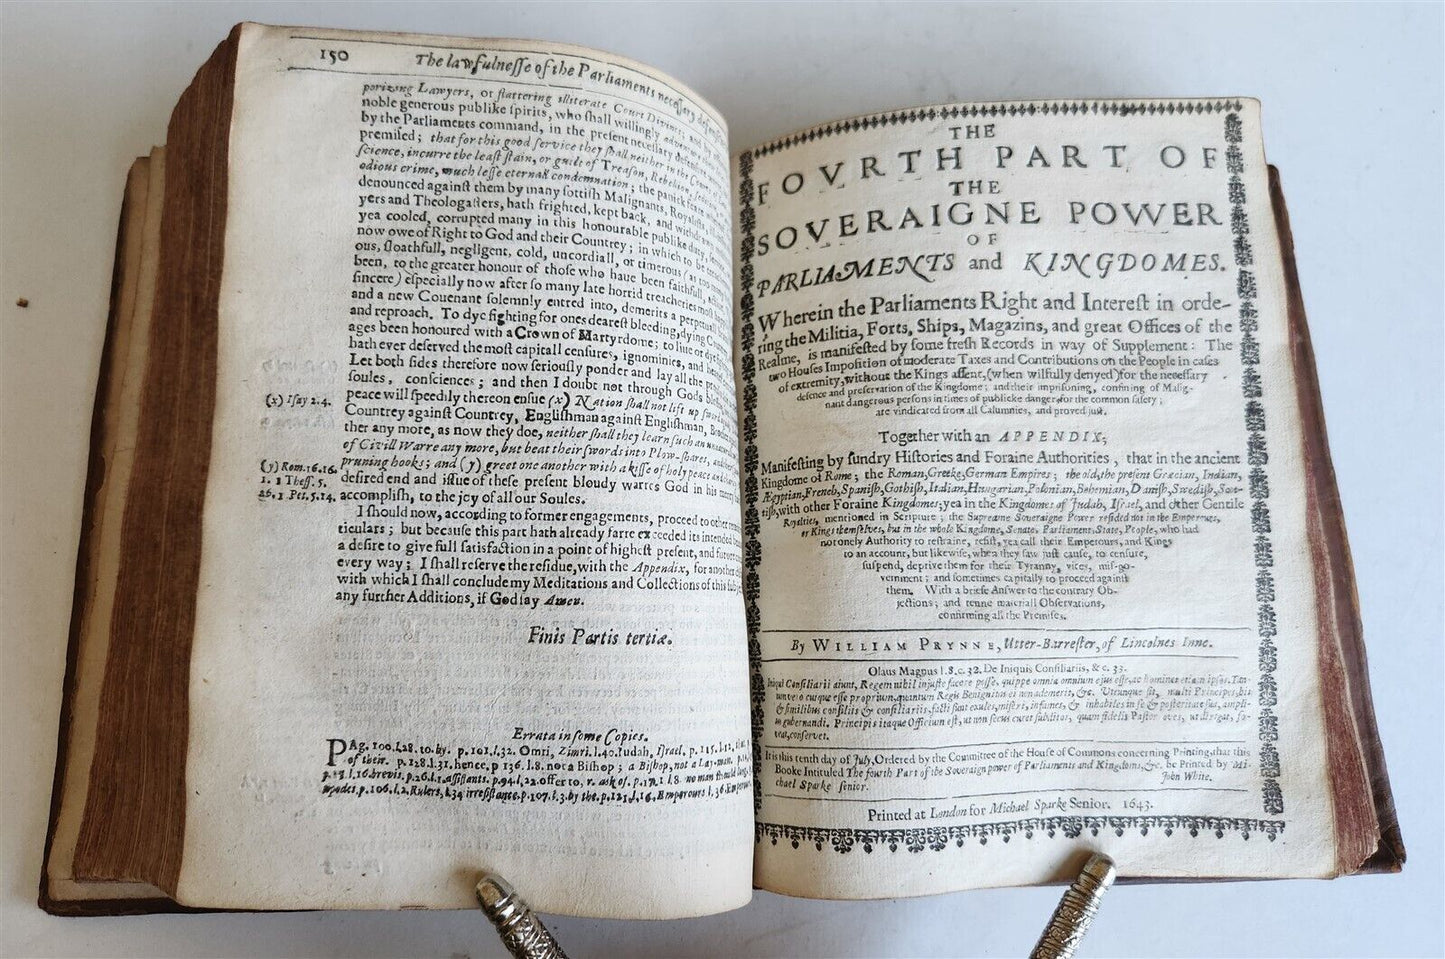 150 The lawfulnesse of the Parliaments necessary defensive
porizing Lawyers, or flattering illiterate Court Divines; and
noble generous publike spirits, who shall willingly adventure
by the Parliaments command, in the present necessary defensive
premised; that for this good service they shall neither in the Court
science, incurre the least stain, or guilt of Treason, Rebellion,
odious crime, much lesse eternall condemnation; the panick feare
denounced against them by many sottish Malignants, Royalists,
yers and Theologasters, hath frighted, kept back, and withdrawn
yea cooled, corrupted many in this honourable publike duty,
now owe of Right to God and their Countrey; in which to be
ous, sloathfull, negligent, cold, uncordiall, or timerous (as too many
been, to the greater honour of those who have been faithfull,
sincere) especially now after so many late horrid treacheries most
and a new Covenant solemnly entred into, demerits a perpetuall
and reproach. To dye fighting for ones dearest bleeding, dying
ages been honoured with a Crown of Martyrdome; to live or dye
hath ever deserved the most capitall censures, ignominies, and
Let both sides therefore now seriously ponder and lay all the
soules, consciences; and then I doubt not through Gods
(x) Isay 2.4. peace will speedily thereon ensue (x) Nation shall not lift up
Countrey against Countrey, Englishman against Englishman,
ther any more, as now they doe, neither shall they learn such an
of Civill Warre any more, but beat their swords into Plow-shares,
(y) Rom. 16.16. pruning hooks; and (y) greet one another with a kisse of holy peace
1. 1 Thess. 5. desired end and issue of these present bloudy warres God in his mercy
26. 1 Pet. 5.14. accomplish, to the joy of all our Soules.
I should now, according to former engagements, proceed to other
ticulars; but because this part hath already farre exceeded its intended
a desire to give full satisfaction in a point of highest present, and
every way; I shall reserve the residue, with the Appendix, for another
with which I shall conclude my Meditations and Collections of this
any further Additions, if God say Amen.
Finis Partis tertiæ.
Errata in some Copies.
PAg. 100. l. 28. to. by. p. 101. l. 32. Omri, Zimri. l. 40. Judah, Israel.
of their. p. 128. l. 31. hence. p 136. l. 8. not a Bishop; a Bishop, not a Lay-man.
THE
FOVRTH PART OF
THE
SOVERAIGNE POWER
OF
PARLIAMENTS and KINGDOMES.
Wherein the Parliaments Right and Interest in orde-
ring the Militia, Forts, Ships, Magazins, and great Offices of the
Realme, is manifested by some fresh Records in way of Supplement: The
two Houses Imposition of moderate Taxes and Contributions on the People in cases
of extremity, without the Kings assent, (when wilfully denyed) for the necessary
defence and preservation of the Kingdome; and their imprisoning, confining of Malig-
nant dangerous persons in times of publicke danger, for the common safety;
are vindicated from all Calumnies, and proved just.
Together with an APPENDIX;
Manifesting by sundry Histories and Foraine Authorities, that in the ancient
Kingdome of Rome; the Roman, Greeke, German Empires; the old, the present Græcian, Indian,
Ægyptian, French, Spanish, Gothish, Italian, Hungarian, Polonian, Bohemian, Danish, Swedish, Scot-
tish, with other Foraine Kingdomes; yea in the Kingdomes of Judah, Israel, and other Gentile
Royalties, mentioned in Scripture; the Supreame Soveraigne Power resided not in the Emperours,
or Kings themselves, but in the whole Kingdome, Senate, Parliament, State, People, who had
not onely Authority to restraine, resist, yea call their Emperours, and Kings
to an account, but likewise, when they saw just cause, to censure,
suspend, deprive them for their Tyranny, vices, mis-go-
vernment; and sometimes capitally to proceed against
them. With a briefe Answer to the contrary Ob-
jections; and tenne materiall Observations,
confirming all the Premises.
By WILLIAM PRYNNE, Utter-Barrester, of Lincolnes Inne.
Olaus Magnus l. 8. c. 32. De Iniquis Consiliariis, &c. 33.
Iniqui Consiliarii aiunt, Regem nihil injuste facere posse, quippe omnia omnium ejus esse, ac homines etiam ipsos. Tan-
tum vero cuique esse proprium, quantum Regis Benignitas ei non ademerit, &c. Utcunque sit, multi Principes, his
& similibus consiliis & consiliariis, facti sunt exules, miseri, infames, & inhabiles in se & posteritate sua, ampli-
us gubernandi. Principis itaque Officium est, ut non secus curet subditos, quam fidelis Pastor oves, ut dirigat, fo-
veat, conservet.
It is this tenth day of July, Ordered by the Committee of the House of Commons concerning Printing, that this
Booke Intituled The fourth Part of the Soveraign power of Parliaments and Kingdoms, &c. be Printed by Mi-
chael Sparke senior. John White.
Printed at London for Michael Sparke Senior. 1643.